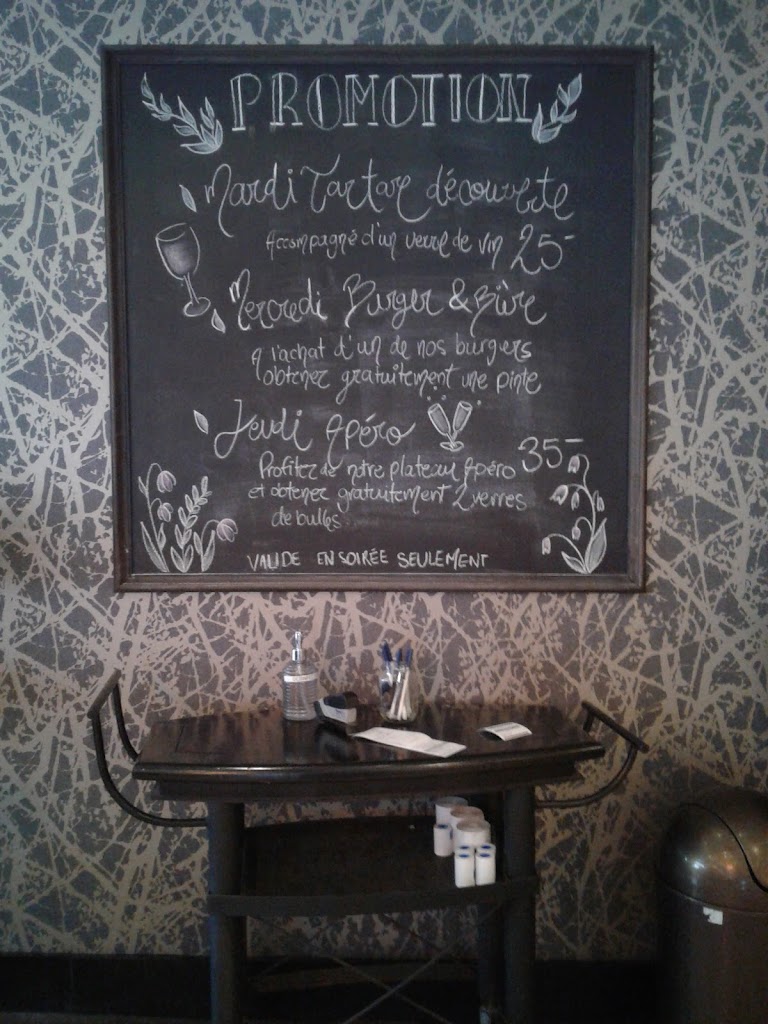 PROMOTION
Mardi Tartare découverte
Accompagné d'un verre de vin 25-
Mercredi Burger & Bière
A l'achat d'un de nos burgers
obtenez gratuitement une pinte
Jeudi Apéro
Profitez de notre plateau Apéro 35-
et obtenez gratuitement 2 verres
de bulles
VALIDE EN SOIRÉE SEULEMENT